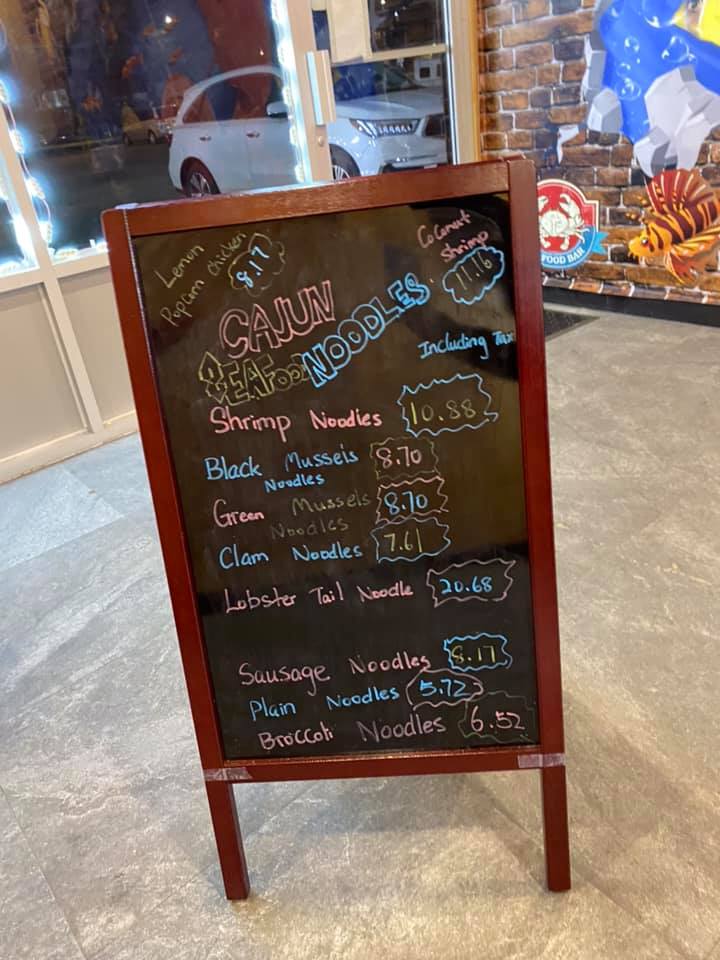 Lemon
Popcorn Chicken 8.17
Coconut
Shrimp
11.16
CAJUN
SEAFOOD NOODLES
Including Tax
Shrimp Noodles 10.88
Black Mussels 8.70
Noodles
Green Mussels 8.70
Noodles
Clam Noodles 7.61
Lobster Tail Noodle 20.68
Sausage Noodles 8.17
Plain Noodles 5.72
Broccoli Noodles 6.52
FOOD BAR